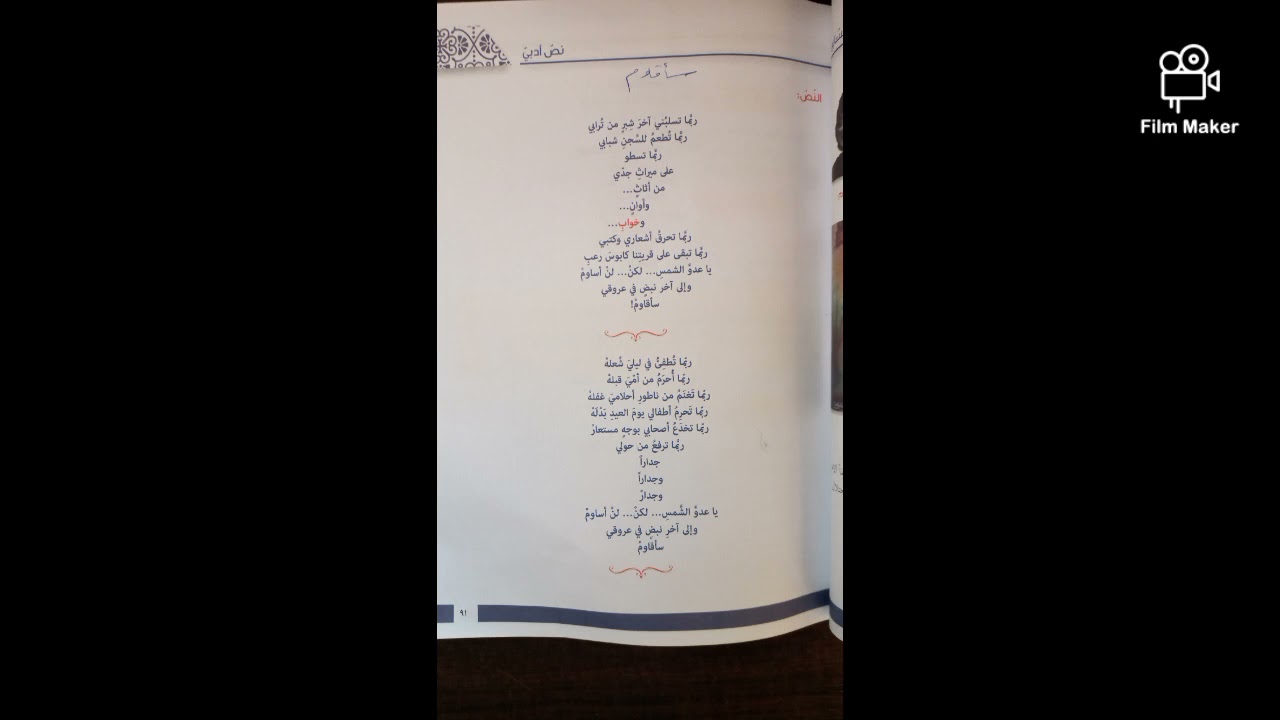 نصّ أدبيّ
سأقلام
النّصّ:
ربَّما تسلبُني آخرَ شِبرٍ من تُرابي
ربَّما تُطعمُ للسَّجنِ شبابي
ربَّما تسطو
على ميراثِ جدّي
من أثاثٍ...
وأوانٍ...
وخوابِ...
ربَّما تحرقُ أشعاري وكتبي
ربَّما تبقى على قريتِنا كابوسَ رعبِ
يا عدوَّ الشمسِ... لكنْ... لنْ أساومْ
وإلى آخر نبضٍ في عروقي
سأقاومْ!
ربّما تُطفِئُ في ليليَ شُعلهْ
ربّما أُحرَمُ من أمّيَ قبلهْ
ربّما تَغنَمُ من ناطورِ أحلاميَ غفلهْ
ربّما تَحرِمُ أطفالي يومَ العيدِ بَدْلَهْ
ربّما تخدَعُ أصحابي بوجهٍ مستعارْ
ربَّما ترفعُ من حولي
جداراً
وجداراً
وجدارْ
يا عدوَّ الشَّمسِ... لكنْ... لنْ أساومْ
وإلى آخرِ نبضٍ في عروقي
سأقاومْ
٩١
Film Maker